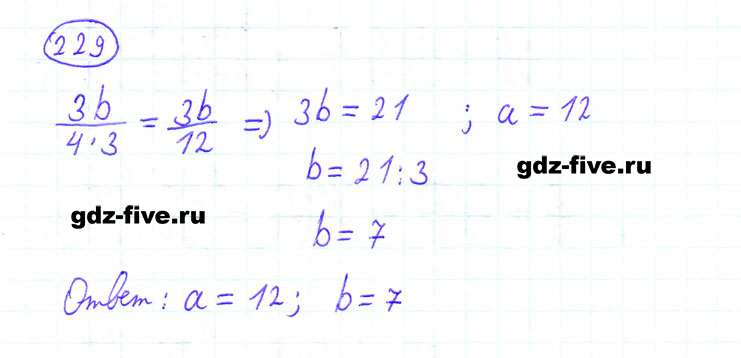 229
3b/(4·3) = 3b/12 => 3b = 21 ; a = 12
b = 21 : 3
gdz-five.ru
gdz-five.ru
b = 7
Ответ: a = 12; b = 7